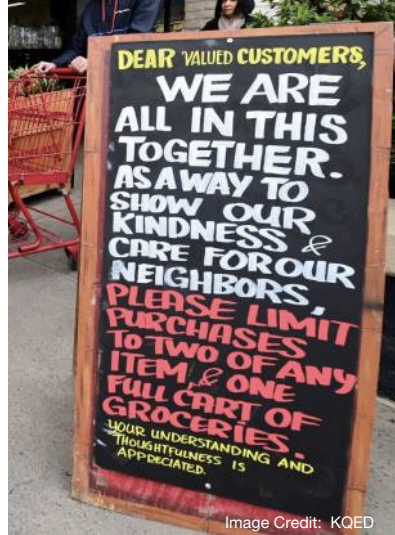 DEAR VALUED CUSTOMERS,
WE ARE
ALL IN THIS
TOGETHER.
AS A WAY TO
SHOW OUR
KINDNESS &
CARE FOR OUR
NEIGHBORS,
PLEASE LIMIT
PURCHASES
TO TWO OF ANY
ITEM, & ONE
FULL CART OF
GROCERIES.
YOUR UNDERSTANDING AND
THOUGHTFULNESS IS
APPRECIATED.
Image Credit: KQED